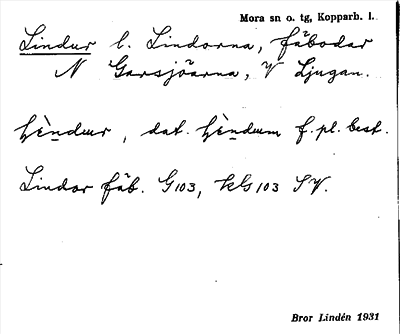 Mora sn o. tg, Kopparb. l.
Lindur l. Lindorna, fäbodar
N Garsjöarna, V Ljugan.
dat. f. pl. best.
Lindor fäb. G103, kls103 SV.
Bror Lindén 1931